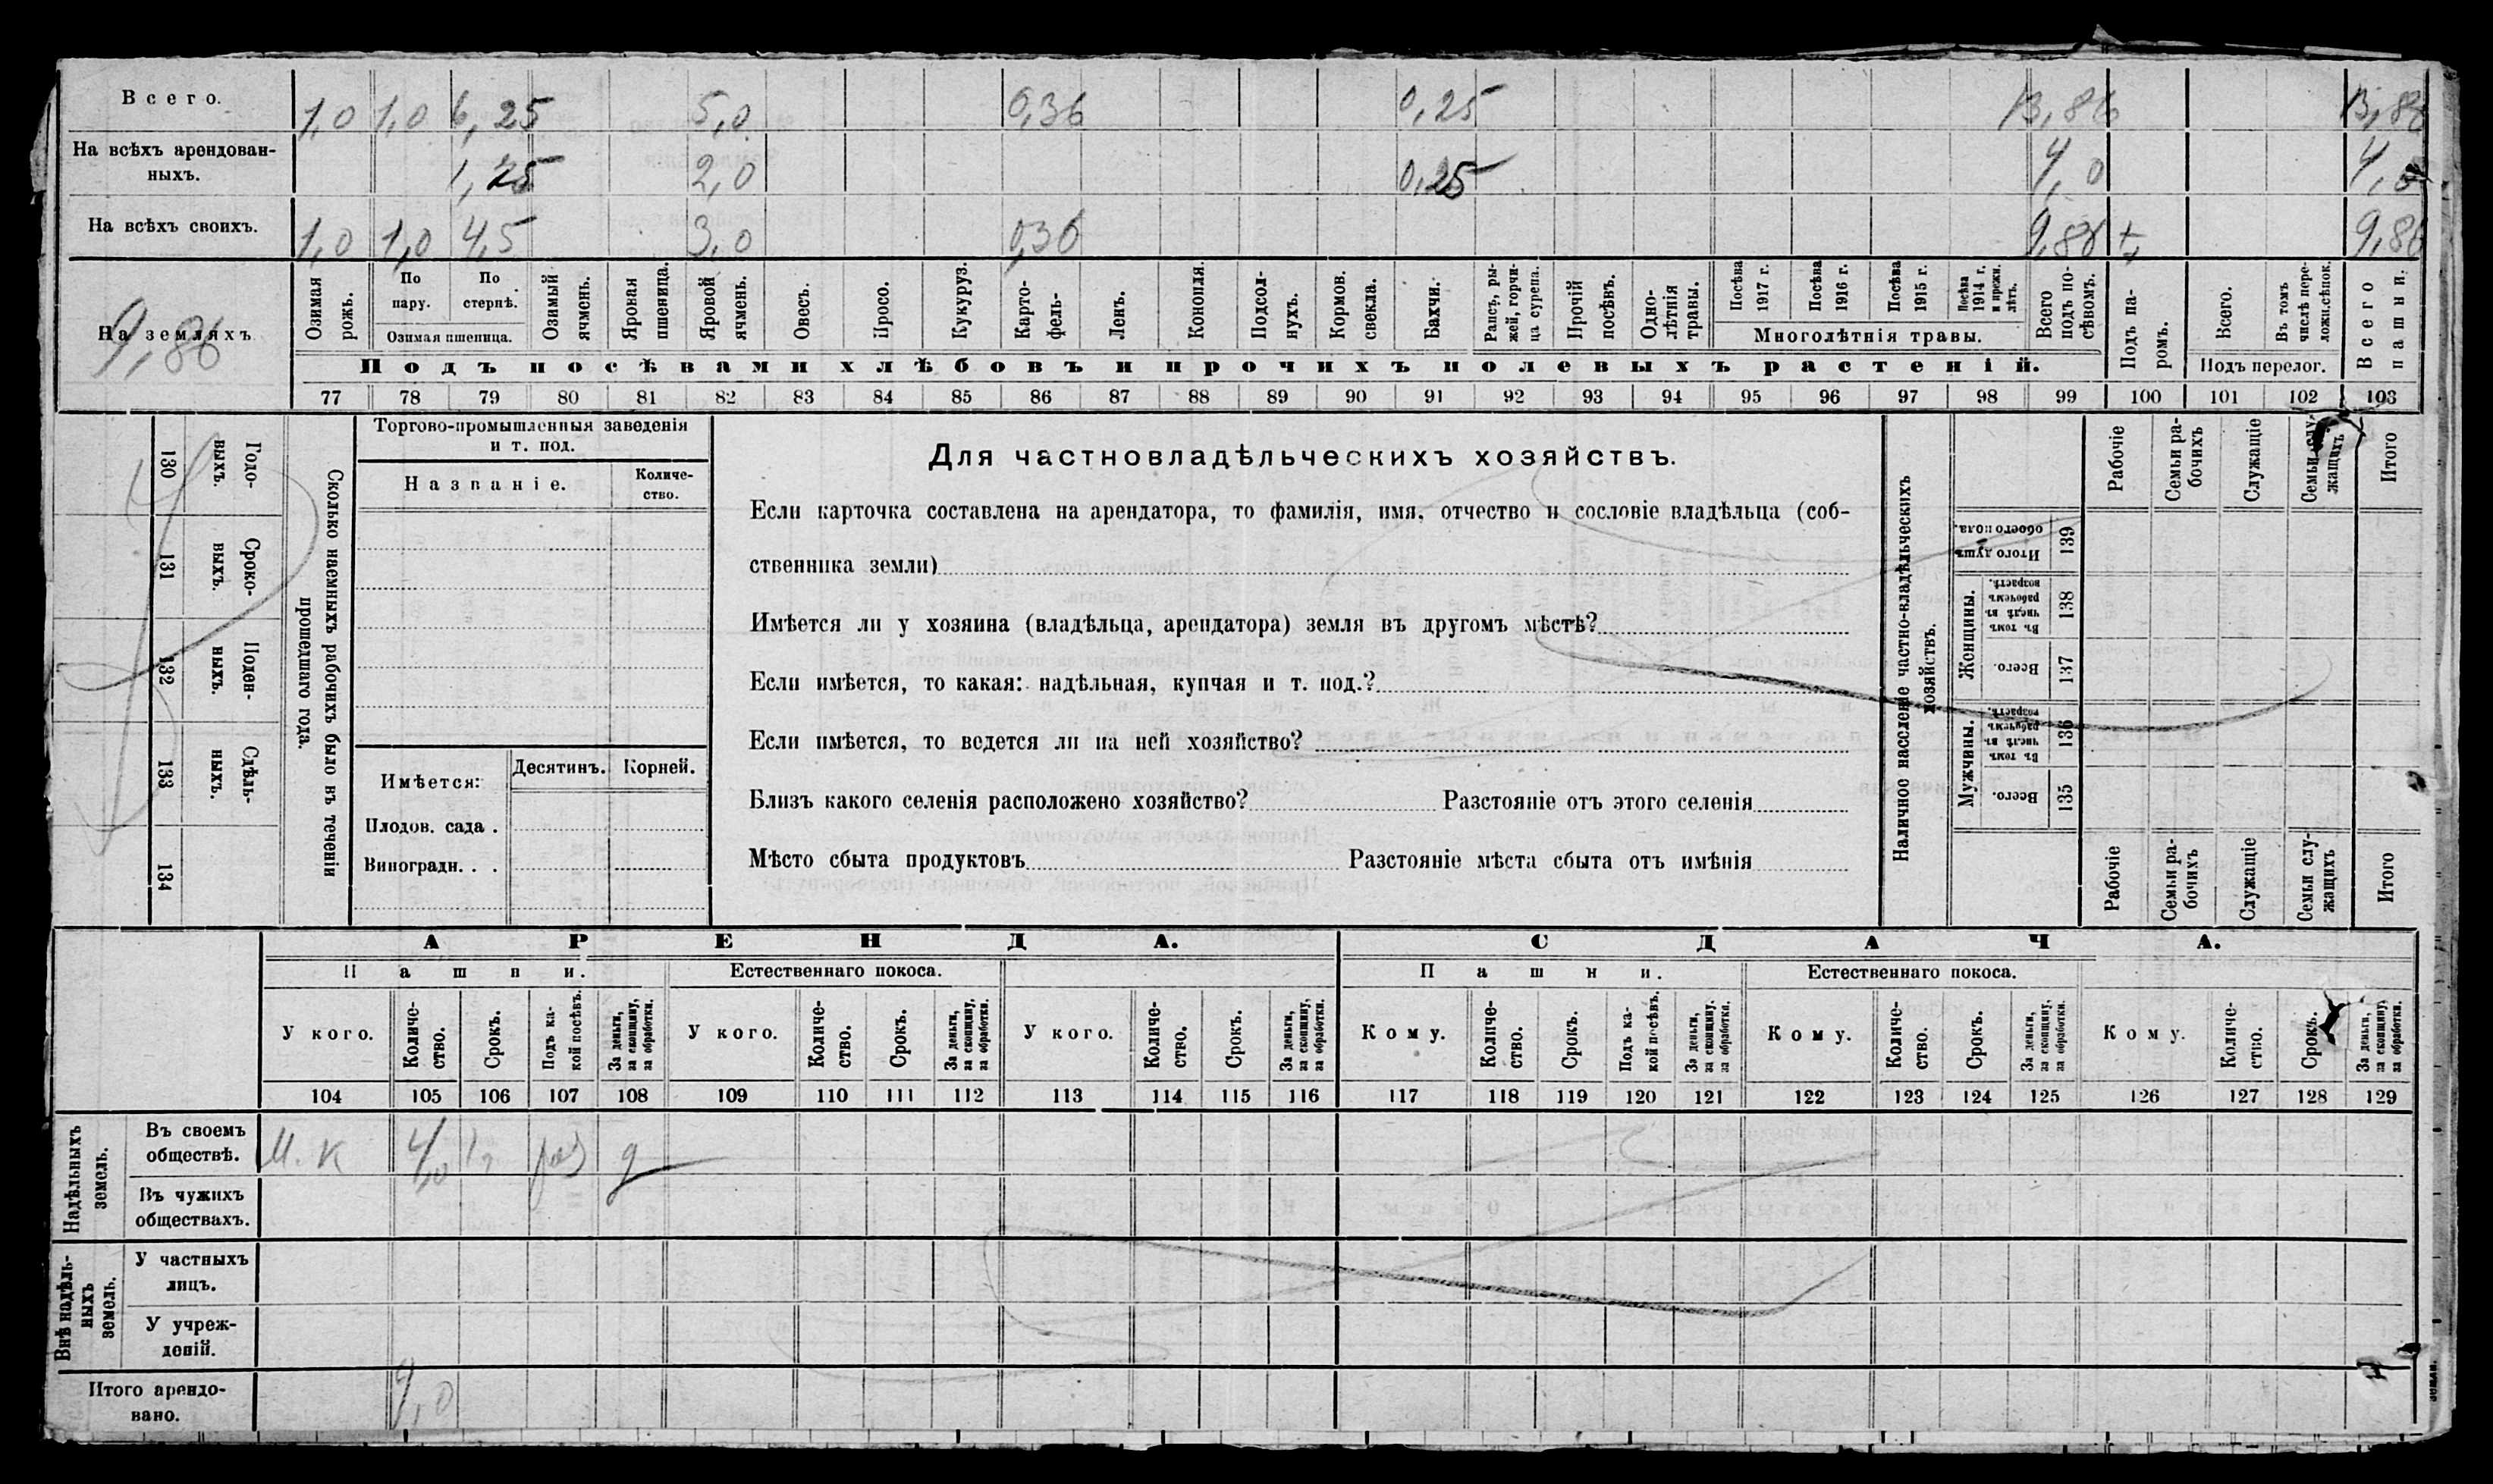 Всего. 1,0 1,0 6,25 5,0 0,36 0,25 13,86 13,86
На всѣхъ арендован-
ныхъ. 1,25 2,0 0,25 4,0 4,0
На всѣхъ своихъ. 1,0 1,0 4,5 3,0 0,36 9,86 9,86
На земляхъ
9,86
Озимая рожь.
По пару.
По стернѣ.
Озимая пшеница.
Озимый ячмень.
Яровая пшеница.
Яровой ячмень.
Овесъ.
Просо.
Кукуруз.
Карто-
фель-
Ленъ.
Конопля.
Подсол-
нухъ.
Кормов. свекла.
Бахчи.
Рапсъ, ры-
жей, горчи-
ца сурепа.
Прочій посѣвъ.
Одно-
лѣтнія травы.
Посѣва 1917 г.
Посѣва 1916 г.
Посѣва 1915 г.
Посѣва 1914 г. и прежн. лѣтъ.
Многолѣтнія травы.
Всего подъ по-
сѣвомъ.
Подъ па-
ромъ.
Всего.
Въ томъ числѣ пере-
ложн.сѣнок.
Подъ перелог.
Всего пашни.
Подъ посѣвами хлѣбовъ и прочихъ полевыхъ растеній.
77 78 79 80 81 82 83 84 85 86 87 88 89 90 91 92 93 94 95 96 97 98 99 100 101 102 103
Сколько наемныхъ рабочихъ было въ теченіи
прошедшаго года.
Годо-
выхъ.
130
Сроко-
выхъ.
131
Поден-
ныхъ.
132
Сдѣль-
ныхъ.
133
134
Торгово-промышленныя заведенія
и т. под.
Названіе.
Количе-
ство.
Имѣется:
Десятинъ. Корней.
Плодов. сада .
Виноградн. . .
Для частновладѣльческихъ хозяйствъ.
Если карточка составлена на арендатора, то фамилія, имя, отчество и сословіе владѣльца (соб-
ственника земли)
Имѣется ли у хозяина (владѣльца, арендатора) земля въ другомъ мѣстѣ?
Если имѣется, то какая: надѣльная, купчая и т. под.?
Если имѣется, то ведется ли на ней хозяйство?
Близъ какого селенія расположено хозяйство? Разстояніе отъ этого селенія
Мѣсто сбыта продуктовъ Разстояніе мѣста сбыта отъ имѣнія
Наличное населеніе частно-владѣльческихъ
хозяйствъ.
Рабочіе
Семьи ра-
бочихъ
Служащіе
Семьи слу-
жащихъ
Итого
Итого душъ
обоего пола.
139
Женщины.
Въ томъ числѣ въ рабочемъ возрастѣ.
138
Всего.
137
Мужчины.
Въ томъ числѣ въ рабочемъ возрастѣ.
136
Всего.
135
Рабочіе
Семьи ра-
бочихъ
Служащіе
Семьи слу-
жащихъ
Итого
АРЕНДА. СДАЧА.
Пашни. Естественнаго покоса. Пашни. Естественнаго покоса.
У кого.
Количе-
ство.
Срокъ.
Подъ ка-
кой посѣвъ.
За деньги,
за скопщину,
за обработки.
У кого.
Количе-
ство.
Срокъ.
За деньги,
за скопщину,
за обработки.
У кого.
Количе-
ство.
Срокъ.
За деньги,
за скопщину,
за обработки.
Кому.
Количе-
ство.
Срокъ.
Подъ ка-
кой посѣвъ.
За деньги,
за скопщину,
за обработки.
Кому.
Количе-
ство.
Срокъ.
За деньги,
за скопщину,
за обработки.
Кому.
Количе-
ство.
Срокъ.
За деньги,
за скопщину,
за обработки.
104 105 106 107 108 109 110 111 112 113 114 115 116 117 118 119 120 121 122 123 124 125 126 127 128 129
Надѣльныхъ
земель.
Въ своемъ
обществѣ. 4,0 д
Въ чужихъ
обществахъ.
Внѣ надѣль-
ныхъ
земель.
У частныхъ
лицъ.
У учреж-
деній.
Итого арендо-
вано. 4,0